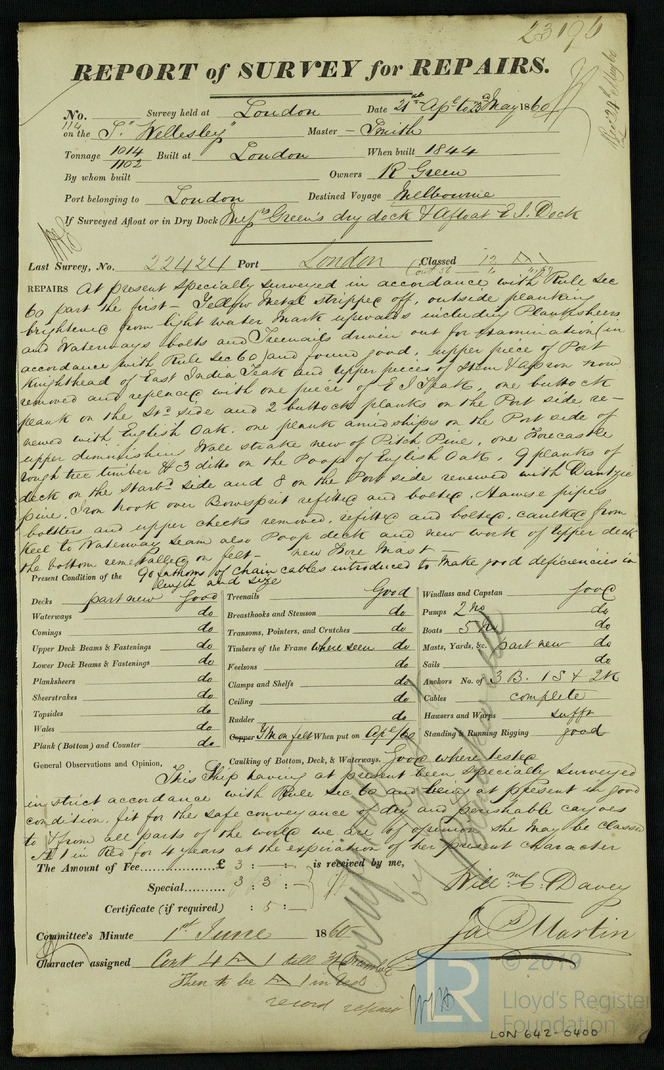 23196
REPORT of SURVEY for REPAIRS.
No. 114 Survey held at London Date 21st Apl to 23rd May 1860
on the S. "Wellesley" Master - Smith
Tonnage 1014 1102 Built at London When built 1844
By whom built Owners R Green
Port belonging to London Destined Voyage Melbourne
If Surveyed Afloat or in Dry Dock Green's dry dock & Afloat E I. Dock
Last Survey, No. 22424 Port London Classed 12
REPAIRS At present specially surveyed in accordance with Rule Sec
60 part the first - Yellow Metal stripped off, outside planking
brightened from light water mark upwards including Planksheers
and Waterways bolts and Treenails driven out for examination (in
accordance with Rule Sec 60) and found good, upper piece of Port
Knighthead of East India Teak and upper pieces of Stem & apron now
removed and replaced with one piece of E I Teak, one buttock
plank on the St. side and 2 buttock planks on the Port side re-
newed with English Oak. one plank amidships on the Port side of
upper diminishing Wale strake new of Pitch Pine, one Forecastle
rough tree timber & 3 ditto on the Poop of English Oak, 9 planks of
deck on the Starbd side and 8 on the Port side renewed with Dantzic
pine. Iron hook over Bowsprit refitted and bolted. Hawse pipes
bolsters and upper cheeks removed, refitted and bolted, caulked from
keel to Waterway seam also Poop deck and new work of Upper deck
the bottom remetalled on felt - new Fore Mast
90 fathoms of chain cables introduced to make good deficiencies in
length and size
Present Condition of the
Decks part new Good
Waterways do
Comings do
Upper Deck Beams & Fastenings do
Lower Deck Beams & Fastenings do
Planksheers do
Sheerstrakes do
Topsides do
Wales do
Plank (Bottom) and Counter do
Treenails Good
Breasthooks and Stemson do
Transoms, Pointers, and Crutches do
Timbers of the Frame where seen do
Keelsons do
Clamps and Shelfs do
Ceiling do
Rudder do
Copper YM on felt When put on Apl/60
Caulking of Bottom, Deck, & Waterways. Good where tested
Windlass and Capstan good
Pumps 2 No do
Boats 5 No do
Masts, Yards, &c. part new do
Sails do
Anchors No. of 3 B. 1 S & 2 K
Cables complete
Hawsers and Warps sufft
Standing & Running Rigging good
General Observations and Opinion,
This Ship having at present been specially surveyed
in strict accordance with Rule Sec 60 and being at present in good
condition, fit for the safe conveyance of dry and perishable cargoes
to & from all parts of the world we are of opinion she may be classed
A 1 in Red for 4 years at the expiration of her present character
The Amount of Fee £ 3 : - : - is received by me,
Special 3 3 : -
Certificate (if required) : 5 : -
Willm C. Davey
Jas Martin
Committee's Minute 1st June 1860
Character assigned Cont A 1 till
Then to be A 1 in Red
record repairs
© 2019
LR
Lloyd's Register
Foundation
LON 642-0400